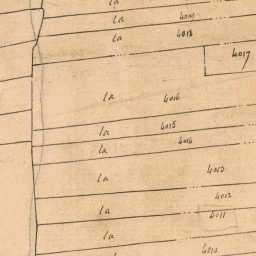 la
la 4019
la 4018
4017
la 4016
la 4015
la 4014
la 4013
4012
la 4011
la
la 4010